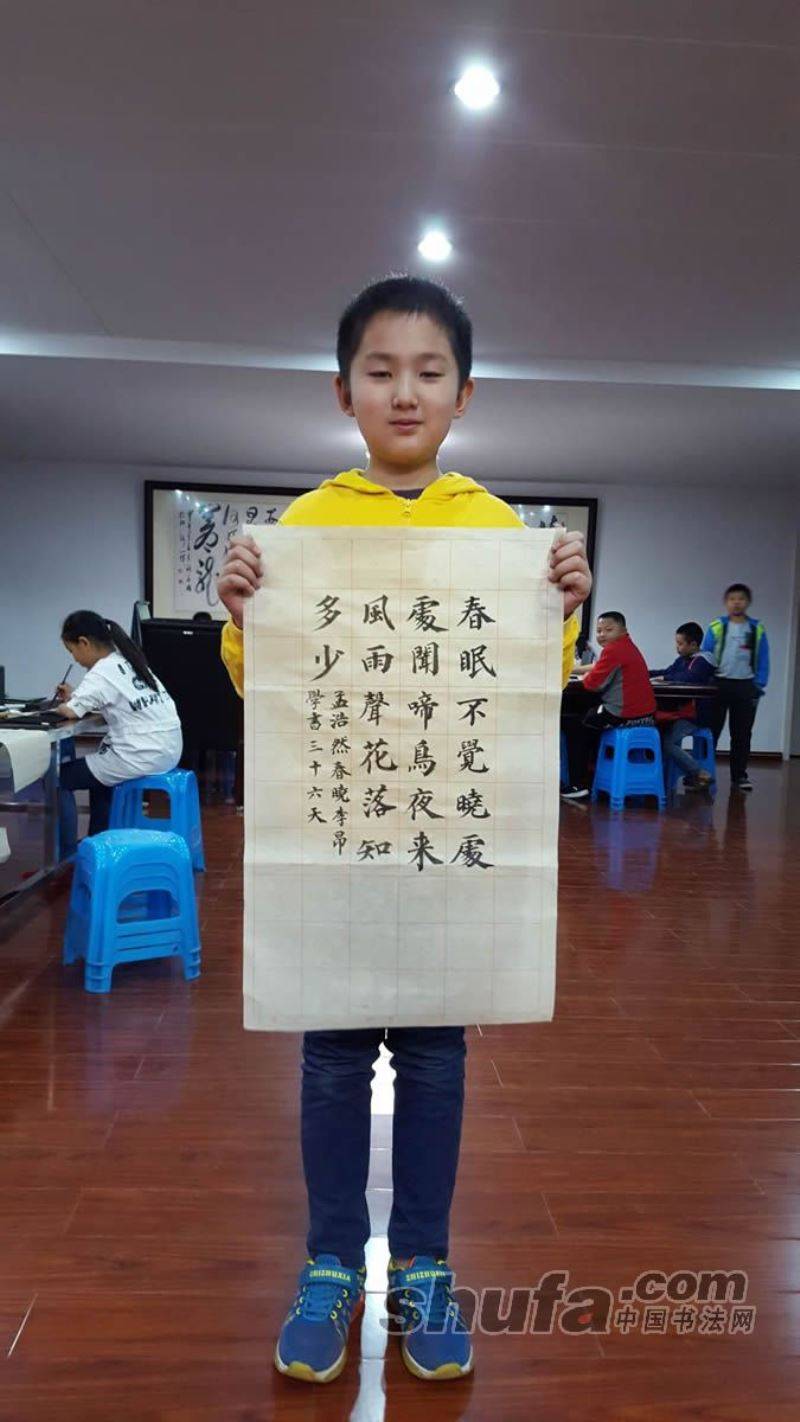 春眠不覺曉處
處聞啼鳥夜来
風雨聲花落知
多少
孟浩然春曉李昂
學書三十六天
SHIZHUXIA
SHIZHUXIA
shufa.com
中国书法网